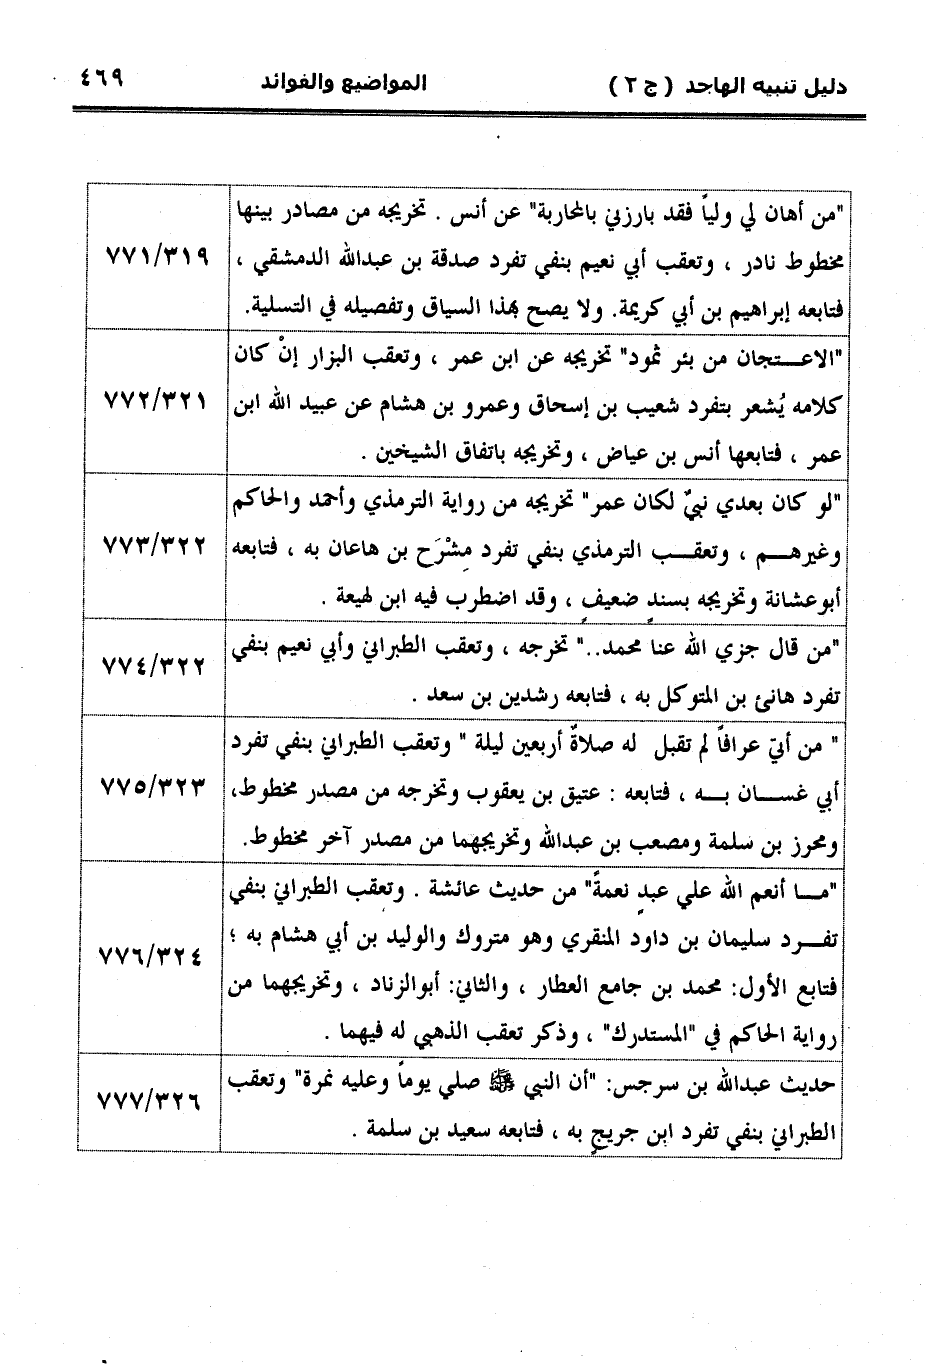 دليل تنبيه الهاجد ( ج ٢ ) المواضيع والفوائد ٤٦٩
"من أهان لي ولياً فقد بارزني بالمحاربة" عن أنس . تخريجه من مصادر بينها
مخطوط نادر ، وتعقب أبي نعيم بنفي تفرد صدقة بن عبدالله الدمشقي ،
فتابعه إبراهيم بن أبي كريمة. ولا يصح بهذا السياق وتفصيله في التسلية.
٧٧١/٣١٩
"الاعـــتجان من بئر ثمود" تخريجه عن ابن عمر ، وتعقب البزار إنْ كان
كلامه يُشعر بتفرد شعيب بن إسحاق وعمرو بن هشام عن عبيد الله ابن
عمر ، فتابعها أنس بن عياض ، وتخريجه باتفاق الشيخين .
٧٧٢/٣٢١
"لو كان بعدي نبيٌ لكان عمر" تخريجه من رواية الترمذي وأحمد والحاكم
وغيرهـــم ، وتعقـــب الترمذي بنفي تفرد مِشْرَح بن هاعان به ، فتابعه
أبوعشانة وتخريجه بسندٍ ضعيفٍ ، وقد اضطرب فيه ابن لهيعة .
٧٧٣/٣٢٢
"من قال جزي الله عنا محمد.." تخرجه ، وتعقب الطبراني وأبي نعيم بنفي
تفرد هانئ بن المتوكل به ، فتابعه رشدين بن سعد .
٧٧٤/٣٢٢
" من أتى عرافاً لم تقبل له صلاةٌ أربعين ليلة " وتعقب الطبراني بنفي تفرد
أبي غســـان بـــه ، فتابعه : عتيق بن يعقوب وتخرجه من مصدر مخطوط،
ومحرز بن سلمة ومصعب بن عبدالله وتخريجهما من مصدر آخر مخطوط.
٧٧٥/٣٢٣
"مـــا أنعم الله علي عبدٍ نعمةً" من حديث عائشة . وتعقب الطبراني بنفي
تفـــرد سليمان بن داود المنقري وهو متروك والوليد بن أبي هشام به ؛
فتابع الأول: محمد بن جامع العطار ، والثاني: أبوالزناد ، وتخريجهما من
رواية الحاكم في "المستدرك" ، وذكر تعقب الذهبي له فيهما .
٧٧٦/٣٢٤
حديث عبدالله بن سرجس: "أن النبي ﷺ صلي يوماً وعليه نمرة" وتعقب
الطبراني بنفي تفرد ابن جريجٍ به ، فتابعه سعيد بن سلمة .
٧٧٧/٣٢٦